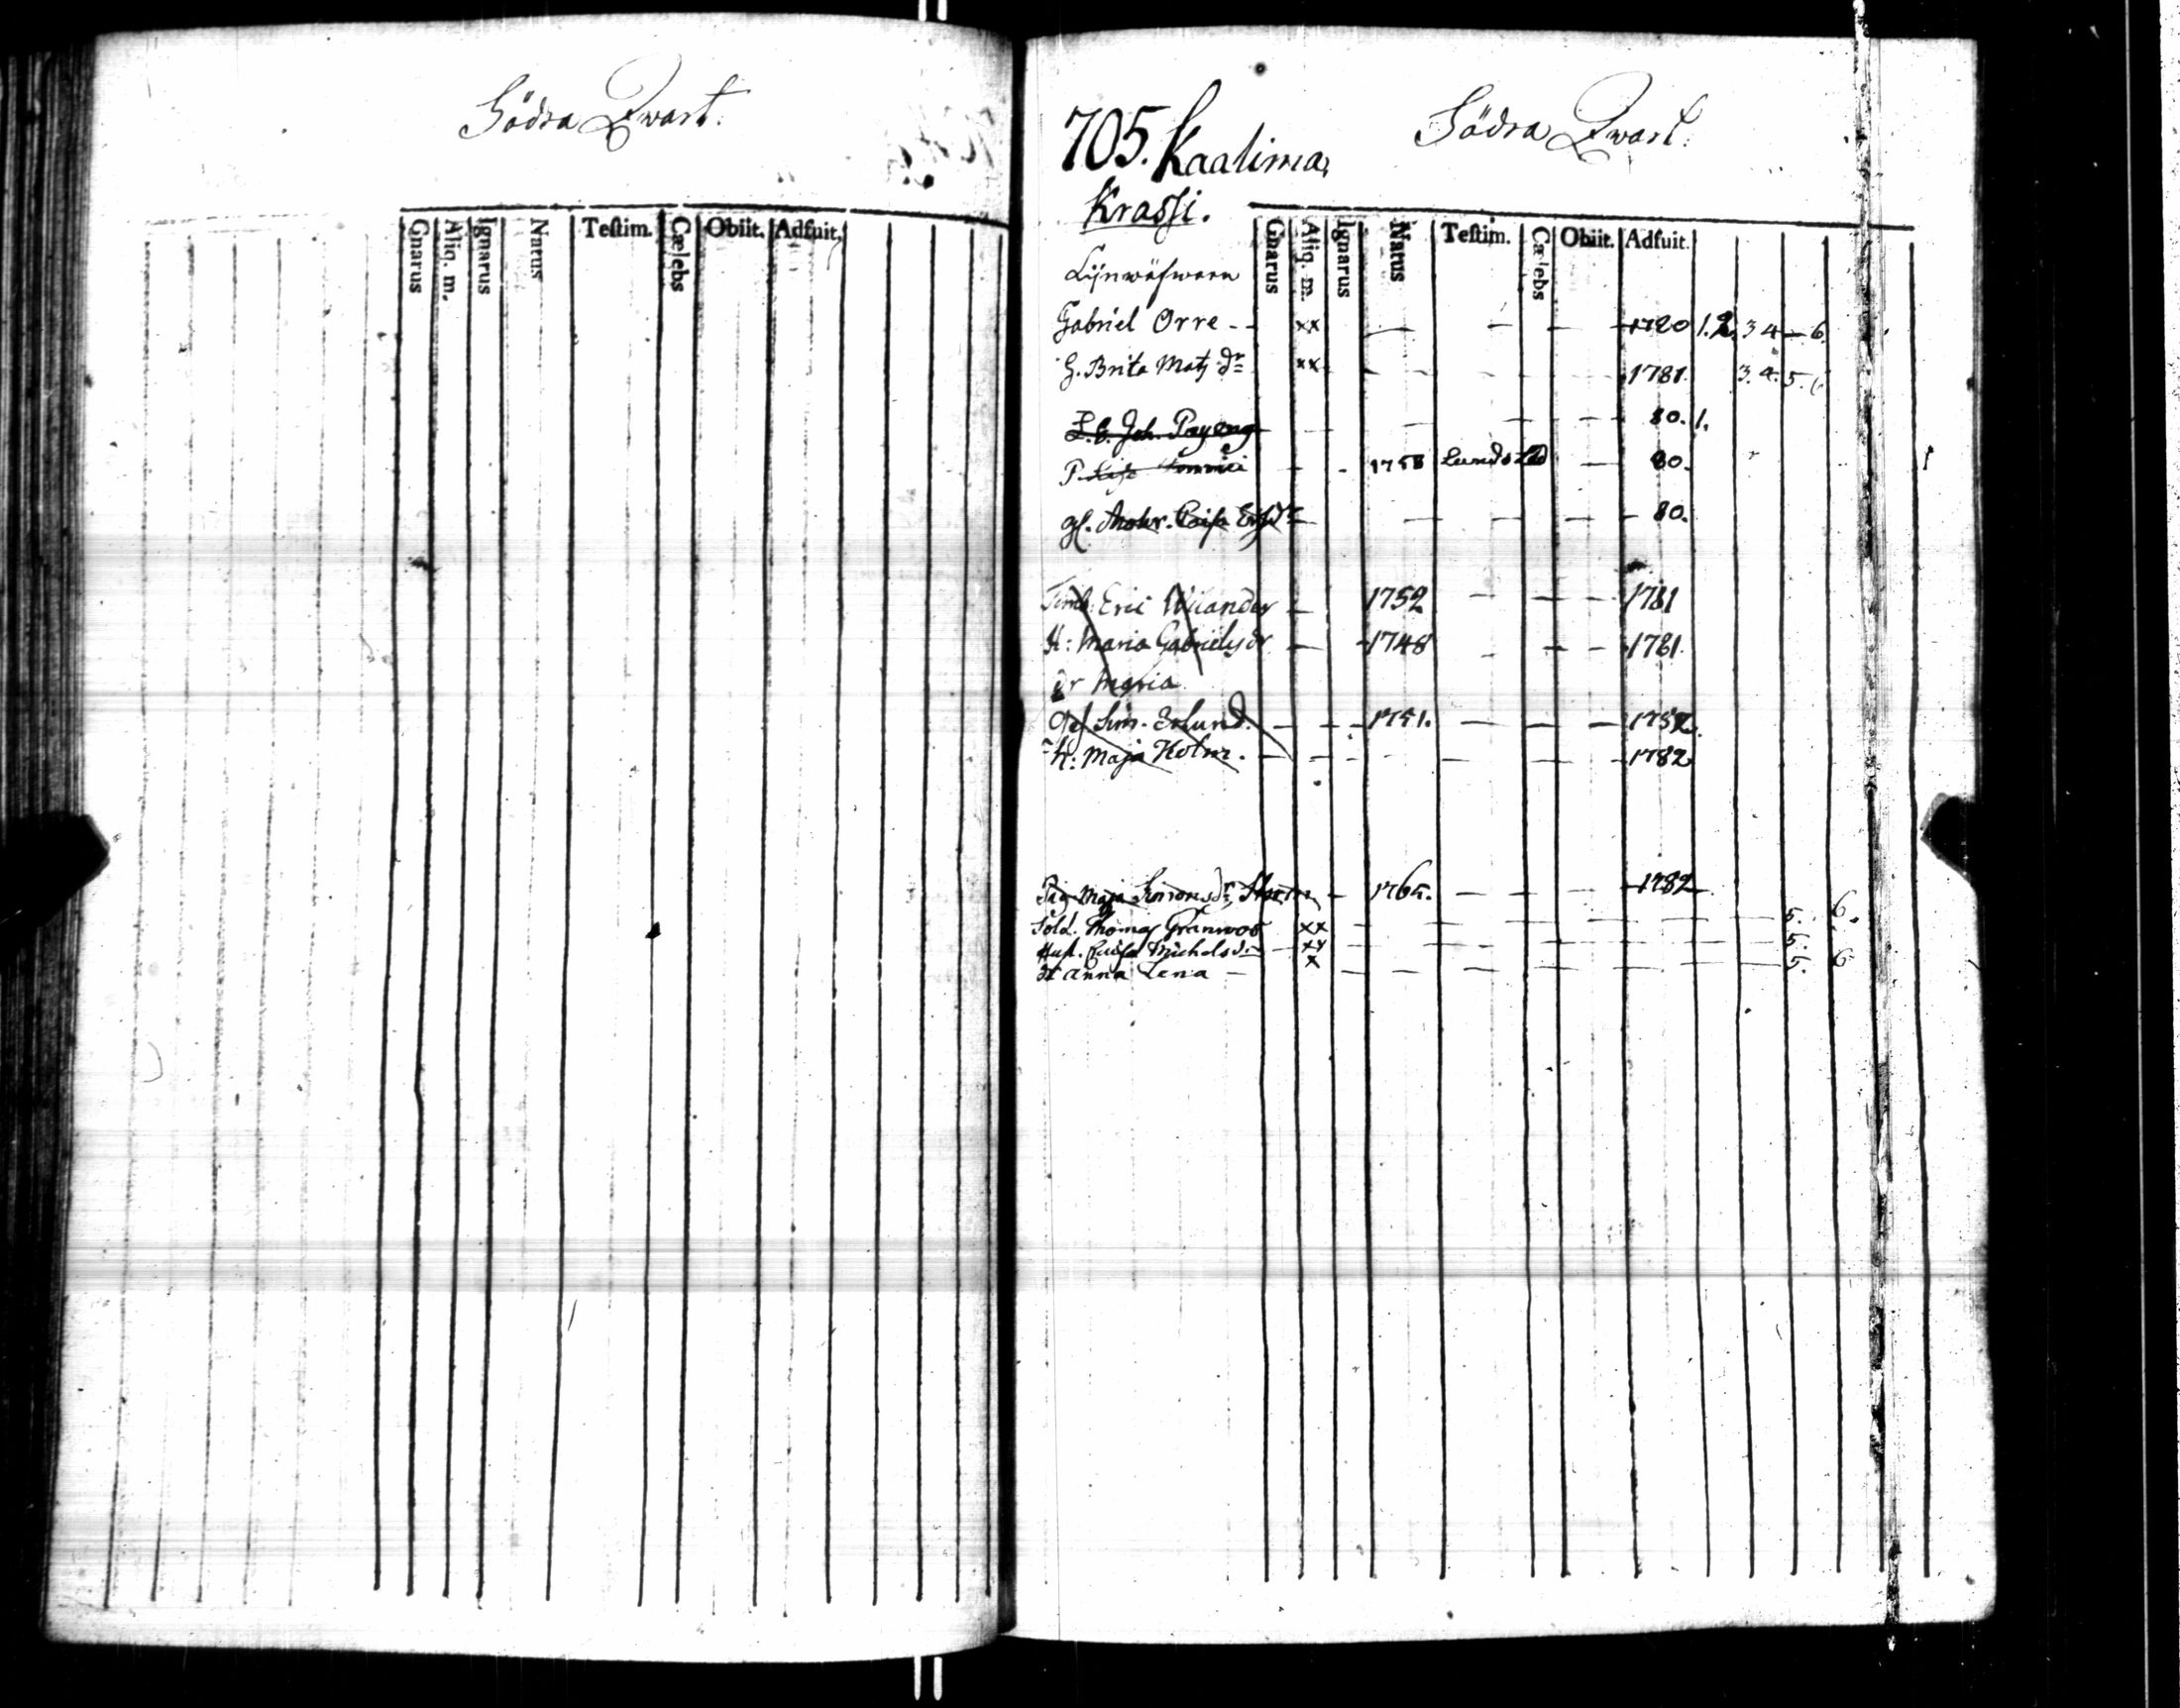 Södra Qwart.
Gnarus Aliq. m. Ignarus Natus Testim. Cælebs Obiit. Adfuit.
705. Kaatima, Södra Qwart.
Krassi.
Gnarus Aliq. m. Ignarus Natus Testim. Cælebs Obiit. Adfuit.
Lijnwäfwaren
Gabriel Orre - xx — — — 1780 1. 2. 3 4 — 6.
H. Brita Matz dr xx - - - 1781. 3. 4. 5. 6
Joh. — — — — 80. 1.
P. - - 1758 — 80.
gl. — — — — 80.
Eric Wilander — 1752 — — — 1781
H: Maria Gabrielsdr — 1748 - — — 1781.
dr Maria
Ge: Sim. Eklund. — - - 1751. — — — 1782.
H: Maja Holm. — — - - - — — — 1782
Pig. Maja Simonsdr, - 1765. — — — 1782
Sold. Thomas Granroos xx — — — — — — — 5. 6.
Hust. Michelsdr — xx — — — — — — — 5.
dr Anna Lena — x — — — — — — — 5. 6